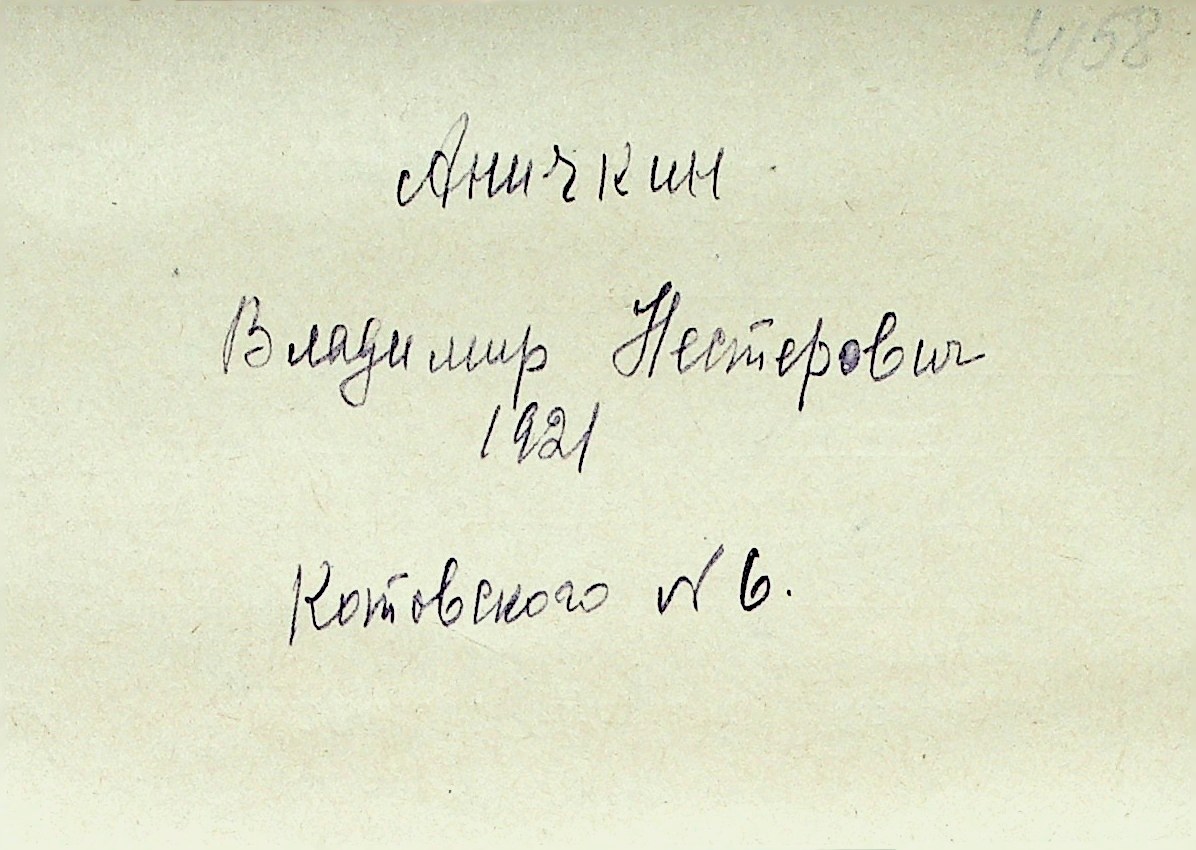 4158
Аничкин
Владимир Нестерович
1921
Котовского N 6.